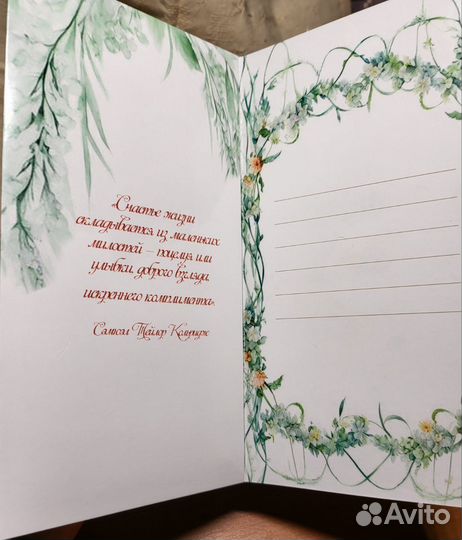 «Счастье жизни
складывается из маленьких
милостей – поцелуя или
улыбки, доброго взгляда,
искреннего комплимента».
Самюэл Тейлор Кольридж
Avito